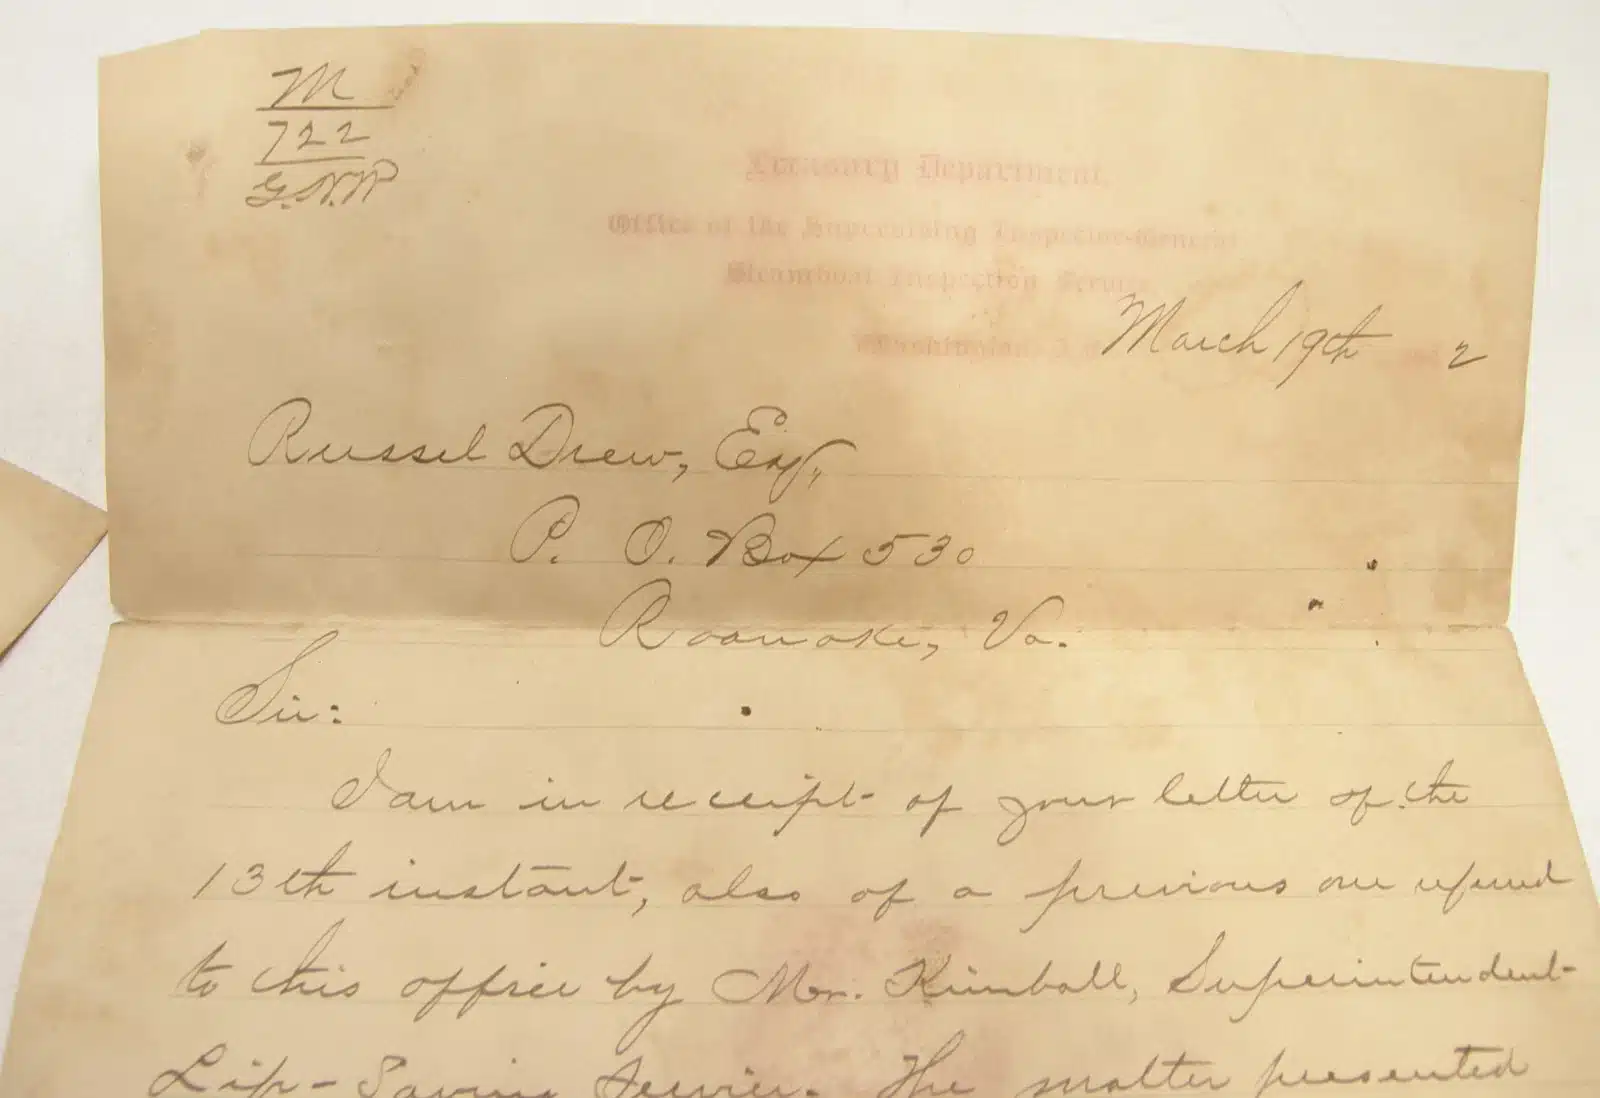 M
722
G.N.M
Treasury Department,
Office of the Supervising Inspector-General
Steamboat Inspection Service,
Washington, March 19th 2
Russel Drew, Esq.,
P. O. Box 530
Roanoke, Va.
Sir:
I am in receipt of your letter of the
13th instant, also of a previous one referred
to this office by Mr. Kimball, Superintendent
Life-Saving Service. The matter presented